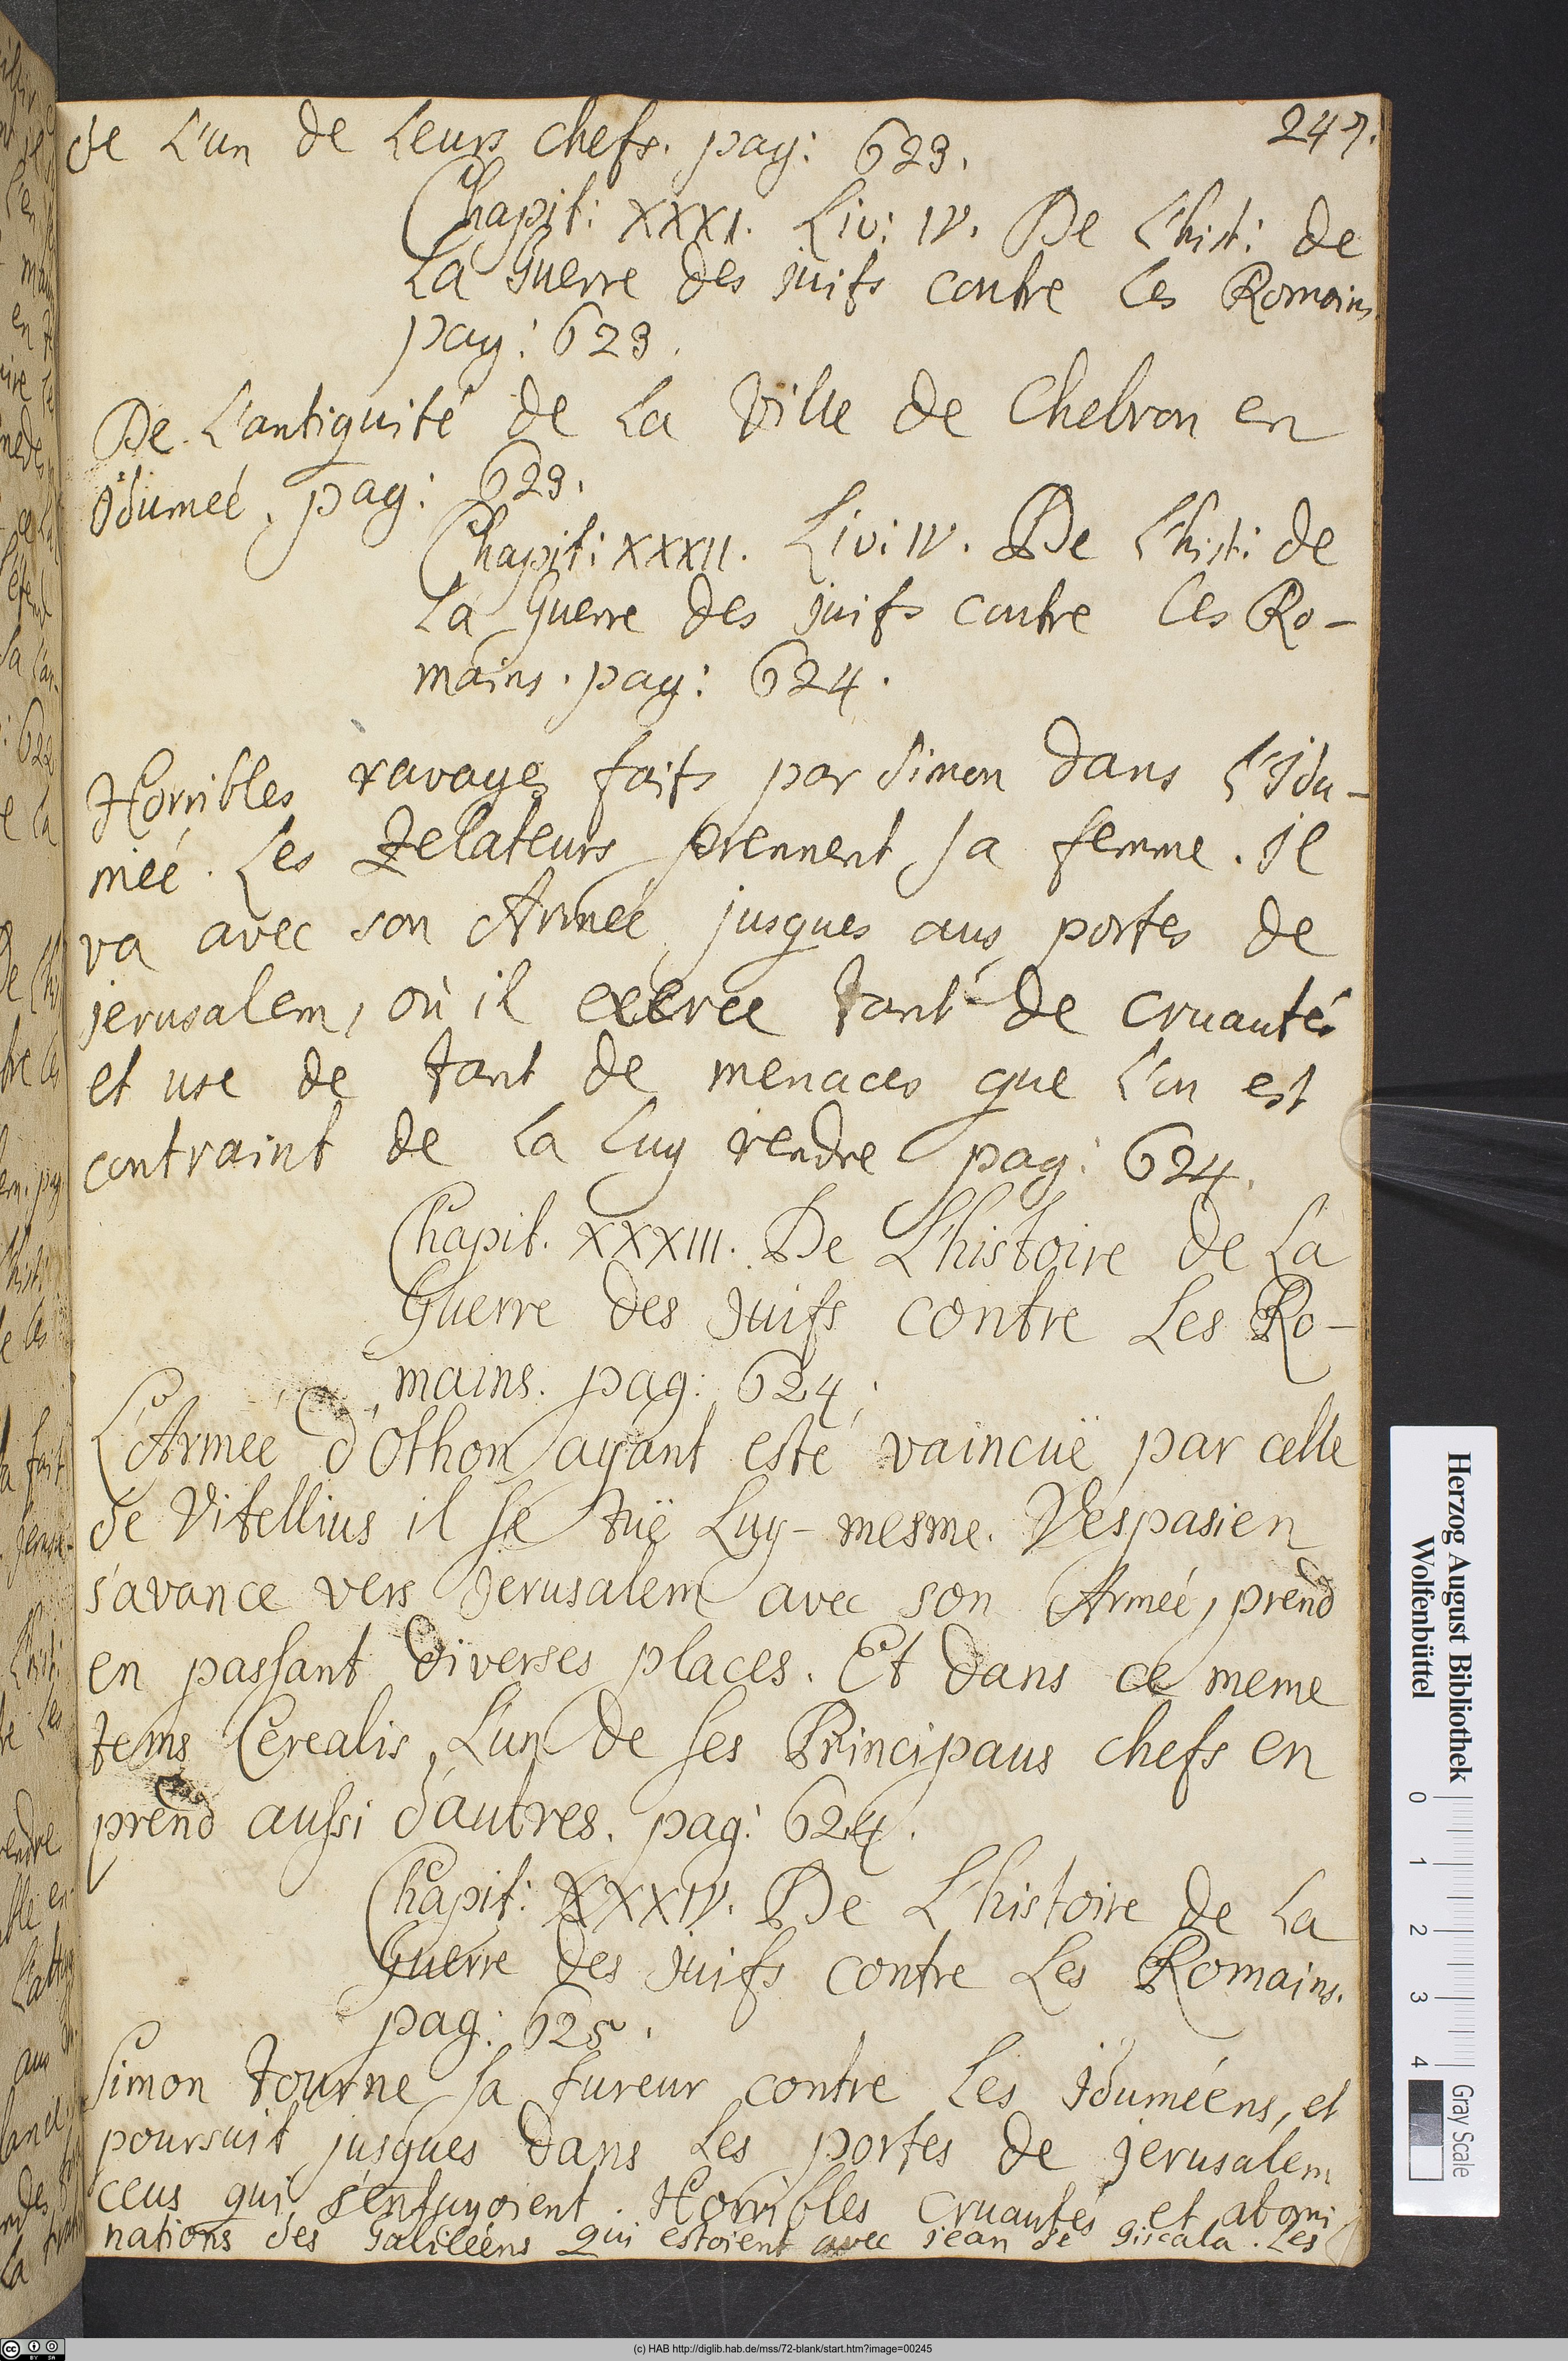 247.
de L'un de Leurs chefs. pag: 623.
Chapit: XXXI. Liv: IV. De L'hist: de
La Guerre des juifs contre Les Romains
pag: 623.
De L'antiquité de La Ville de Chebron en
Idumeé. pag: 623.
Chapit: XXXII. Liv: IV. De L'hist: de
La Guerre des juifs contre Les Ro-
mains. pag: 624.
Horribles ravages faits par Simon dans L'Idu-
meé. Les Zelateurs prennent sa femme. Il
va avec son Armeé jusques aus portes de
jerusalem, où il exerce tant de cruautés
et use de tant de menaces que L'on est
contraint de La Luy rendre pag: 624.
Chapit. XXXIII. De L'histoire de La
Guerre des Juifs contre Les Ro-
mains. pag: 624.
L'Armeé d'Othon ayant esté vaincuë par celle
de Vitellius il se tuë Luy-mesme. Vespasien
s'avance vers Jerusalem avec son Armeé, prend
en passant diverses places. Et dans ce meme
tems Cerealis, L'un de ses Principaus chefs en
prend aussi d'autres. pag: 624.
Chapit: XXXIV. De L'histoire de La
Guerre des juifs contre Les Romains.
pag: 625.
Simon tourne sa fureur contre Les Iduméens, et
poursuit jusques dans Les portes de jerusalem
ceus qui s'enfuyoient. Horribles cruautés et abomi
nations des Galiléens qui estoient avec jean de Giscala. Les
Herzog August Bibliothek
Wolfenbüttel
0 1 2 3 4
Gray Scale
(c) HAB http://diglib.hab.de/mss/72-blank/start.htm?image=00245